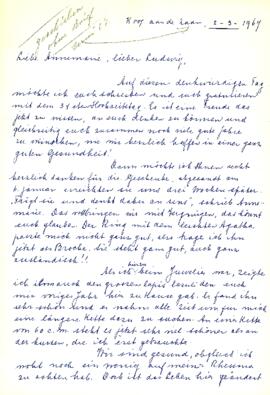 Koog aan de Zaan, 2-3-1967
Liebe Annemarie, lieber Ludwig,
Auf diesen denkwürdigen Tag
möchte ich euch schreiben und euch gratulieren
mit dem 31 ste Hochzeitstag. Es ist eine Freude das
jetzt zu wissen, an euch denken zu können und
gleichzeitig euch zusammen noch viele gute Jahre
zu wünschen, wie wir herzlich hoffen in einer ganz
guten Gesundheit!
Dann möchte ich Ihnen recht
herzlich danken für die Geschenke, abgesandt am
6 januar erreichten sie uns drei Wochen später.
"Trägt sie und denkt dabei an uns", schrieb Anne-
marie. Das vollbringen wir mit Vergnügen, das könnt
euch glauben. Der Ring mit dem
passte mich nicht ganz gut, also trage ich ihn
jetzt als Broche, die steht ganz gut, auch ganz
ausländisch!!
Als ich beim Juwelier war, zeigte
ich ihm auch den grossen Lapis
mir voriges Jahr hin zu Hause gab. Er fand ihn
sehr schön und er nahm alle Zeit um für mich
eine längere Kette dazu zu suchen. An eine Kette
von 60 c.m. steht es jetzt sehr viel schöner als an
der kurzen, die ich erst gebrauchte.
Wir sind gesund, obgleich ich
wohl noch ein wenig auf meine Rheuma
zu achten hab. Doch ist das Leben hier geändert